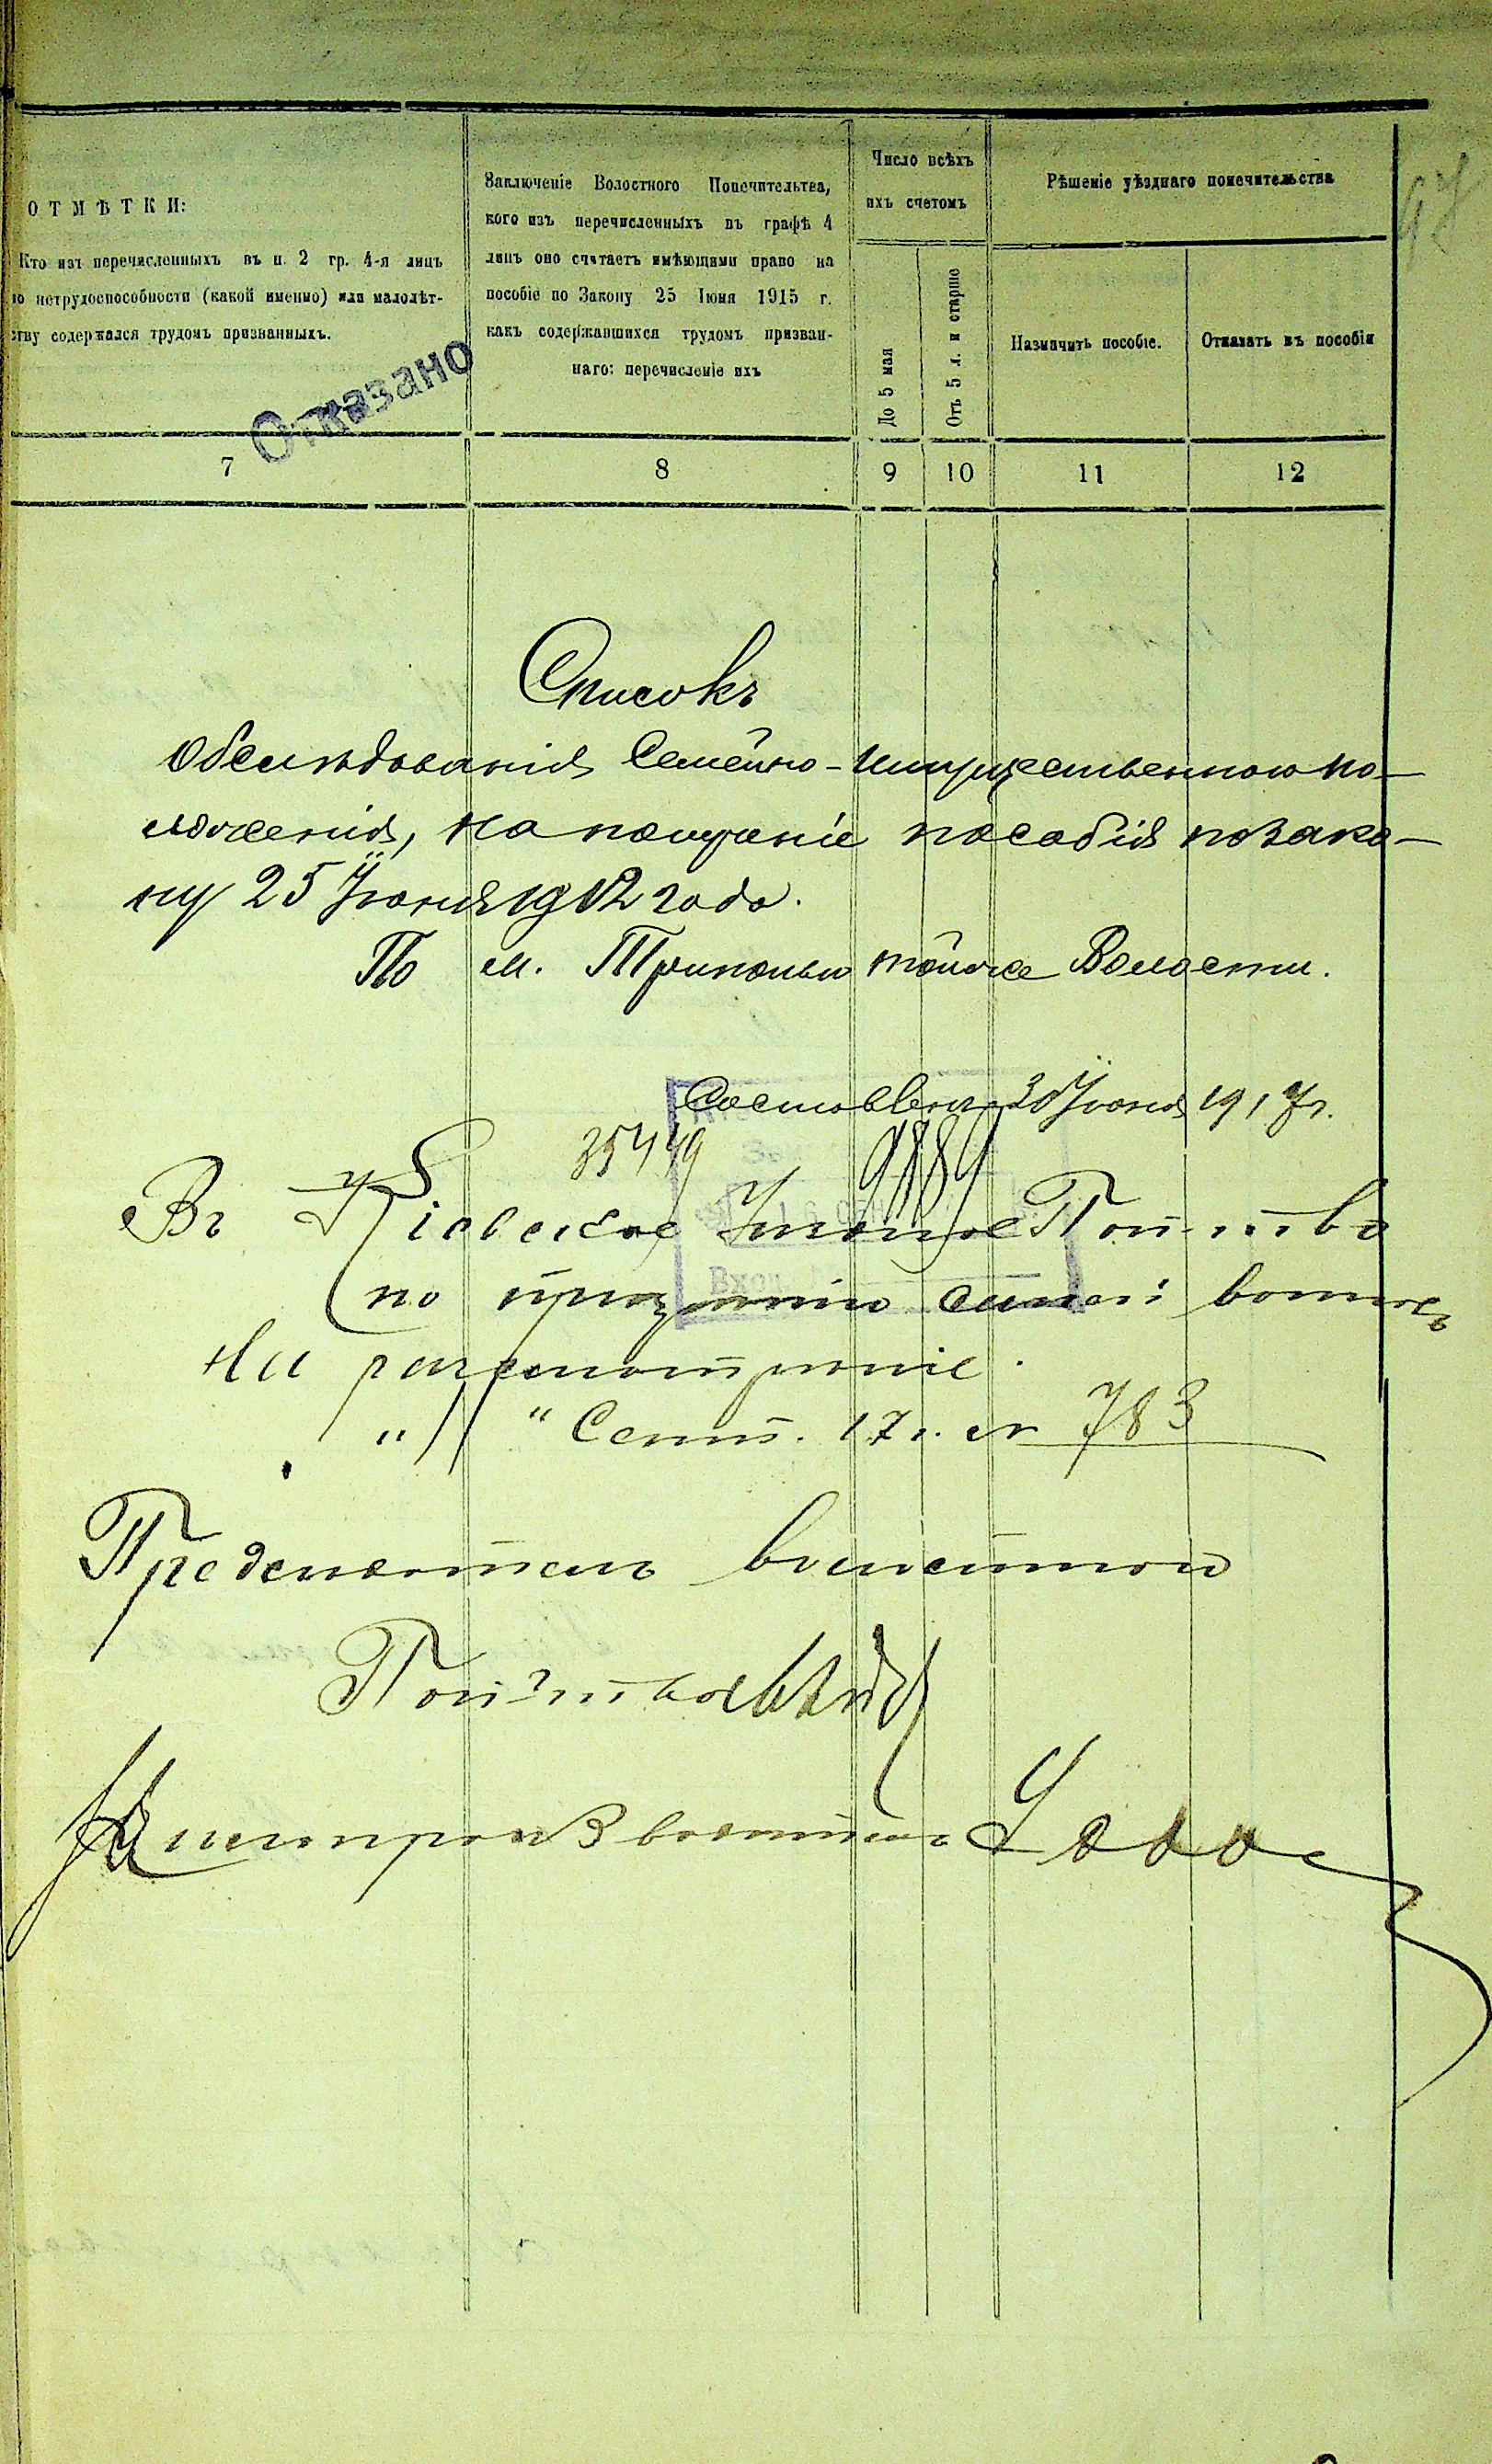 ОТМѢТКИ:
Кто изъ перечисленныхъ въ п. 2 гр. 4-я лицъ
по нетрудоспособности (какой именно) или малолѣт-
ству содержался трудомъ призванныхъ.
Отказано
Заключеніе Волостного Попечительтва,
кого изъ перечисленныхъ въ графѣ 4
лицъ оно считаетъ имѣющими право на
пособіе по Закону 25 Іюня 1915 г.
какъ содержавшихся трудомъ призван-
наго: перечисленіе ихъ
Число всѣхъ
ихъ счетомъ
До 5 мая
Отъ 5 л. и старше
Рѣшеніе уѣзднаго попечительства
Назначить пособіе.
Отказать въ пособіи
7 8 9 10 11 12
Списокъ
обслѣдованія Семейно-имущественного по-
ложенія, на полученіе пособія по зако-
ну 25 Іюня 1912 года.
По м. Триполью той же Волости.
Составленъ 30 Іюня 1917 г.
35449 9789
Въ Кіевское Уѣздное Поп-тво
по призрѣнію семей
На разсмотрѣніе.
" 11 " Сент. 17 г. № 783
Предсѣдатель волостного
Поп-тва